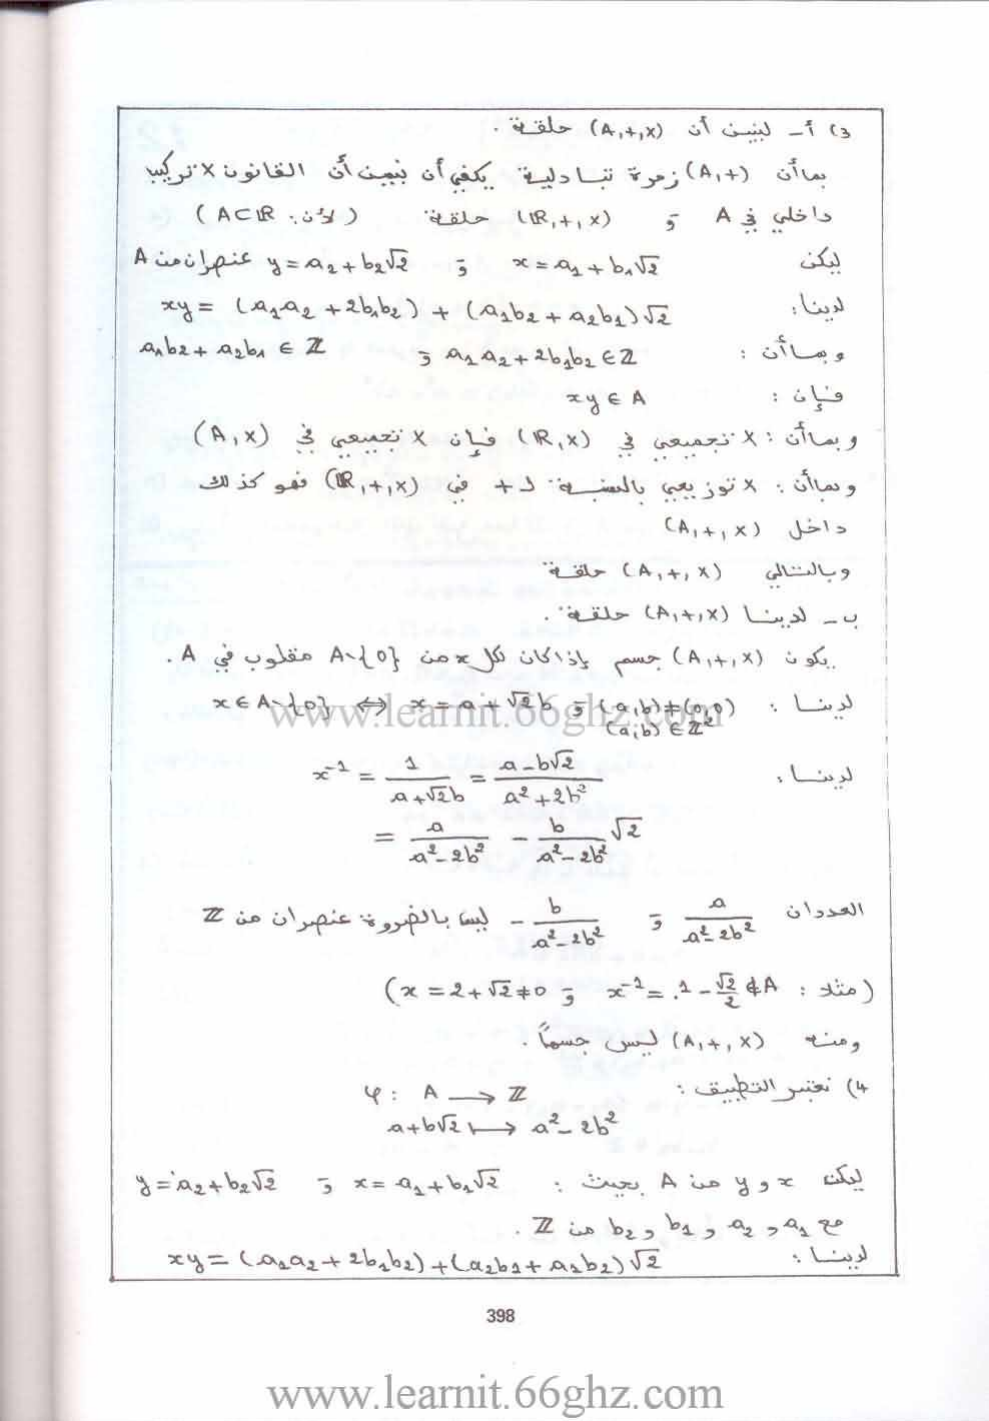 3) أ- لنبين أن (A,+,×) حلقة .
بما أن (A,+) زمرة تبادلية يكفي أن نبين أن القانون × تركيب
داخلي في A و (ℝ,+,×) حلقة (لأن: A⊂ℝ)
ليكن x=a₁+b₁√2 و y=a₂+b₂√2 عنصران من A
لدينا: xy = (a₁a₂+2b₁b₂) + (a₁b₂+a₂b₁)√2
وبما أن : a₁a₂+2b₁b₂∈ℤ و a₁b₂+a₂b₁∈ℤ
فإن : xy∈A
وبما أن : × تجميعي في (ℝ,×) فإن × تجميعي في (A,×)
وبما أن : × توزيعي بالنسبة لـ + في (ℝ,+,×) فهو كذلك
داخل (A,+,×)
وبالتالي (A,+,×) حلقة
ب- لدينا (A,+,×) حلقة .
يكون (A,+,×) جسم إذا كان لكل x من A∖{0} مقلوب في A .
لدينا : x∈A∖{0} ⟺ x=a+√2b و (a,b)≠(0,0)
(a,b)∈ℤ²
www.learnit.66ghz.com
لدينا : x⁻¹ = 1/(a+√2b) = (a-b√2)/(a²+2b²)
= a/(a²-2b²) - b/(a²-2b²) √2
العددان a/(a²-2b²) و -b/(a²-2b²) ليسا بالضرورة عنصران من ℤ
(مثلا : x⁻¹=1-√2/2∉A و x=2+√2≠0)
ومنه (A,+,×) ليس جسماً .
4) نعتبر التطبيق : φ: A ⟶ ℤ
a+b√2 ⟼ a²-2b²
ليكن x و y من A بحيث : x=a₁+b₁√2 و y=a₂+b₂√2
مع a₁ و a₂ و b₁ و b₂ من ℤ .
لدينا : xy=(a₁a₂+2b₁b₂)+(a₂b₁+a₁b₂)√2
398
www.learnit.66ghz.com